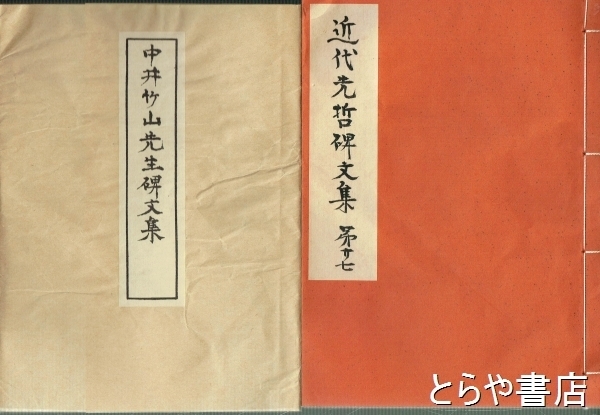 中井竹山先生碑文集
近代先哲碑文集
第廿七
とらや書店